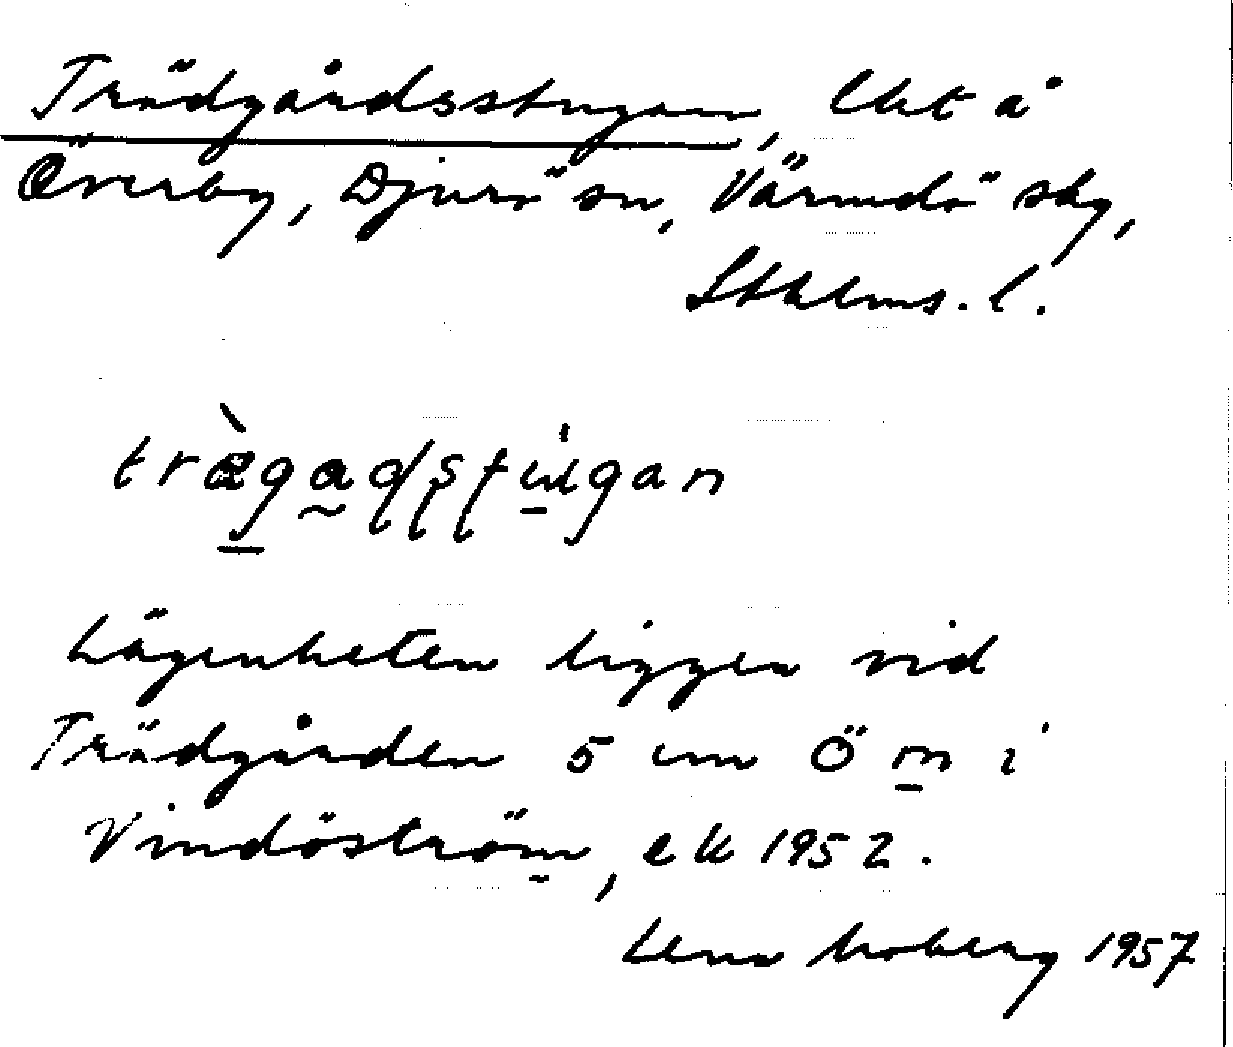 Trädgårdsstugan, lht å
Överby, Djurö sn, Värmdö skg,
Sthlms. l.
træ̀gadstugan
Lägenheten ligger vid
Trädgården 5 cm Ö m i
Vindöström, ek 1952.
Lena Moberg 1957